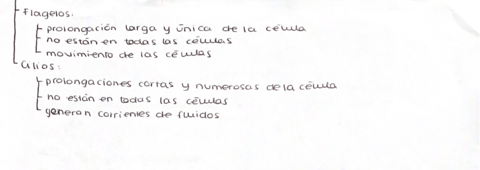 flagelos:
prolongación larga y única de la célula
no están en todas las células
movimiento de las células
Cilios:
prolongaciones cortas y numerosas de la célula
no están en todas las células
generan corrientes de fluidos